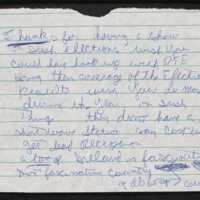 Thanks for having a show
on Irish elections, wish you
could have hook up with RTE
doing their coverage of the Election
results wish you do more
during the year on Irish
things they dont have a
short wave station
get bad reception
a lot of Ireland is fascinating
fascinating country